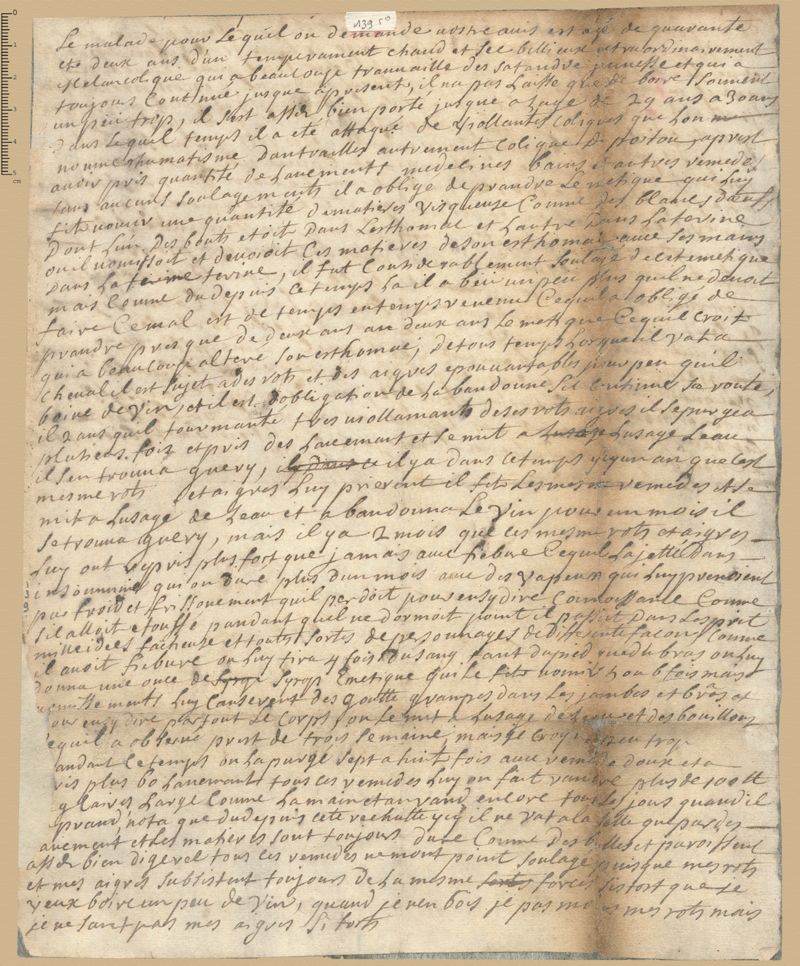 139 50
Le malade pour Lequel on demande vostre avis est agé de quarante
et deux ans d'un temperament chaud et sec billieux extraordinairement
Melancolique qui a beaucoup travaille des sa tandre jeunesse et qui a
toujours Continué jusque apresent, il na pas Laisse que de boire souvent
un peu trop, il sest assez bien porté jusque a lage de 29 ans a 30 ans
dans Lequel temps il a eté attaqué de viollantes Coliques que Lon
nomme rhumatisme dantrailles autrement Colique de poitou, apres
avoir pris quantité de Lavements medecines bains et autres remede
sans aucuns soulagements il a oblige de prandre Lemetique qui Luy
fit vomir une quantité de matieres visqueuse Comme des blancs doeufs
Dont Lun des bouts etoit dans Lesthomac et Lautre dans La terine
ou il vomissoit et devidoit Ces matieres de son esthomac avec ses mains
dans La terine, il fut Considerablement soulagé de Cet emetique
mais Comme du depuis Ce temps La il a beu un peu plus quil ne devoit
faire Ce mal est de temps en temps revenu Cequi La oblige de
prandre presque de deux ans an deux ans Lemetique Cequil Croit
qui a beaucoup altere son esthomac, de tous temps Lorsquil va a
Cheval il est sujet a des rots et des aigres epouvantables pour peu quil
boive de vin, et il est dobligation de La bandonne sil Continue sa route,
il y a 2 ans quil fut tourmanté tres viollamant de ses rots aigres il se purgea
plusieurs fois et pris des Lavemant et se mit a Lusage Leau
il sen trouva guery, il y a dans ce temps y qun an que Cest
mesme rots et aigres Luy prierent il fit Les mesme remedes et se
mit a Lusage de Leau et abandonna Le vin pour un mois il
se trouva guery, mais il y a 2 mois que ces mesme rots et aigres
Luy ont repris plus fort que jamais avec fiebvre Cequi La jetté dans
insommie qui on duré plus dun mois avec des vapeurs qui Luy prenoient
par froid et frissonement quil perdoit pour ensydire Connoissance Comme
sil alloit etouffé pandant quil ne dormoit point il passoit dans Lesprit
mille idées facheuse et toutes sortes de personnages de differente facons Comme
il avoit fiebvre on Luy tira 4 fois du sang tant du pied que du bras on Luy
donna une once de Syrop Emetique qui Le fit vomir 5 ou 6 fois mais
vomissements Luy Causerent des goutte granpes dans Les jambes et bras et
pour ensydire par tout Le Corps, on Le mit a Lusage de Leau et des bouillons
cequil a observé pres de trois semaine, mais je Croy
andant Ce temps on La purgé sept a huit fois avec remede doux et a
ris plus 60 Lavemants tous ces remedes Luy on fait randre plus de 100 ll
glaires Large Comme La main et an rand encore tous Les jours quand il
prand, nota que du depuis cete rechutte icy il ne va a La selle que par des
avement et Les matieres sont toujours dure Comme des balles et paroissent
assez bien digeré tous ces remedes ne mont point soulagé puisque mes rots
et mes aigres subsistent toujours de La mesme force, si fort que je
veux boire un peu de vin, quand je nen bois je pas mes rots mais
je ne sant pas mes aigres si forts